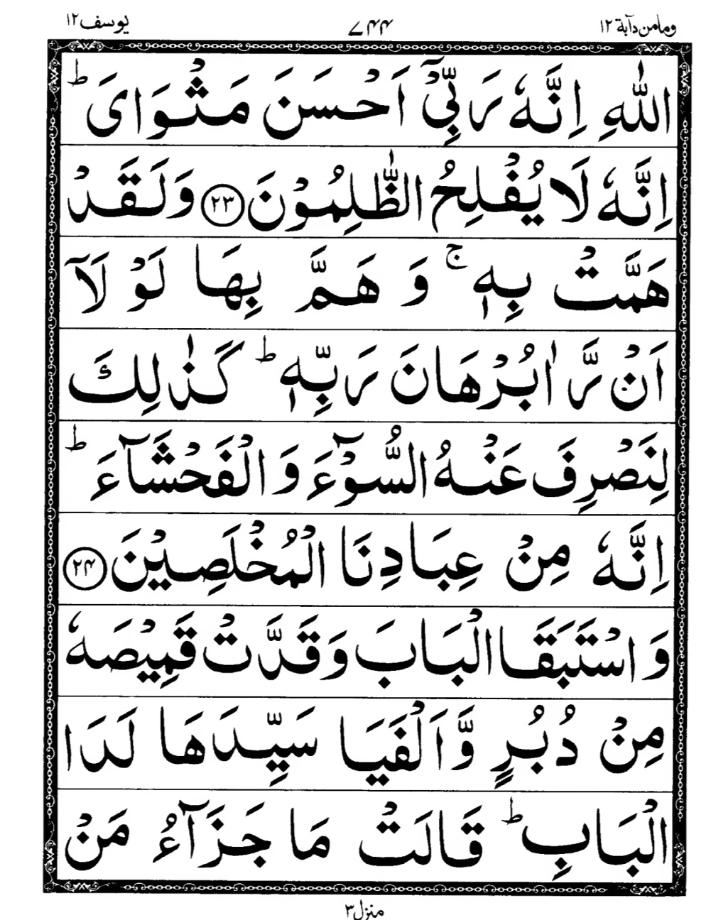 ومامن دآبة ١٢ ٧۴۴ یوسف ١٢
اللّٰهِ اِنَّهٗ رَبِّیْۤ اَحْسَنَ مَثْوَایَ ؕ
اِنَّهٗ لَا یُفْلِحُ الظّٰلِمُوْنَ ﴿٢٣﴾ وَلَقَدْ
هَمَّتْ بِهٖ ۚ وَ هَمَّ بِهَا لَوْ لَاۤ
اَنْ رَّاٰ بُرْهَانَ رَبِّهٖ ؕ كَذٰلِكَ
لِنَصْرِفَ عَنْهُ السُّوْٓءَ وَ الْفَحْشَآءَ ؕ
اِنَّهٗ مِنْ عِبَادِنَا الْمُخْلَصِیْنَ ﴿٢۴﴾
وَ اسْتَبَقَا الْبَابَ وَ قَدَّتْ قَمِیْصَهٗ
مِنْ دُبُرٍ وَّ اَلْفَیَا سَیِّدَهَا لَدَا
الْبَابِ ؕ قَالَتْ مَا جَزَآءُ مَنْ
منزل ٣